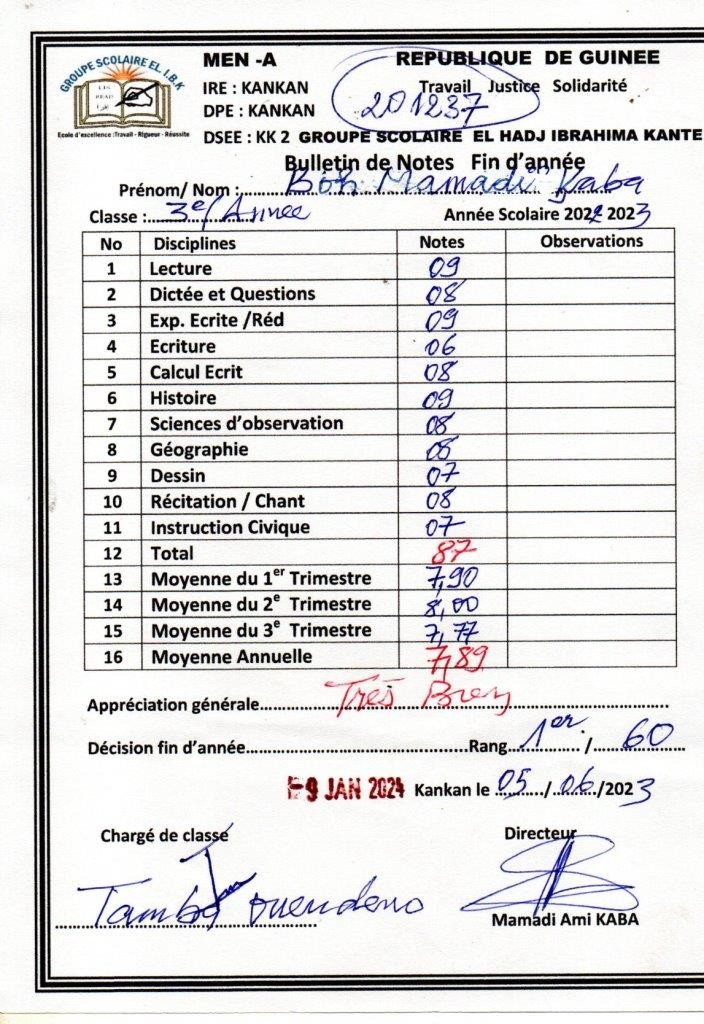 GROUPE SCOLAIRE EL. I.B.K
Ecole d'excellence :Travail - Rigueur - Réussite
MEN -A REPUBLIQUE DE GUINEE
IRE : KANKAN Travail Justice Solidarité
DPE : KANKAN 201237
DSEE : KK 2 GROUPE SCOLAIRE EL HADJ IBRAHIMA KANTE
Bulletin de Notes Fin d'année
Prénom/ Nom : Mamadi Kaba
Classe : 3e/Année Année Scolaire 2022 2023
No Disciplines Notes Observations
1 Lecture 09
2 Dictée et Questions 08
3 Exp. Ecrite /Réd 09
4 Ecriture 06
5 Calcul Ecrit 08
6 Histoire 09
7 Sciences d'observation 08
8 Géographie 08
9 Dessin 07
10 Récitation / Chant 08
11 Instruction Civique 07
12 Total 87
13 Moyenne du 1er Trimestre 7,90
14 Moyenne du 2e Trimestre 8,00
15 Moyenne du 3e Trimestre 7,77
16 Moyenne Annuelle 7,89
Appréciation générale Très Bien
Décision fin d'année Rang 1er / 60
9 JAN 2024 Kankan le 05/06/2023
Chargé de classe Directeur
Tamba
Mamadi Ami KABA